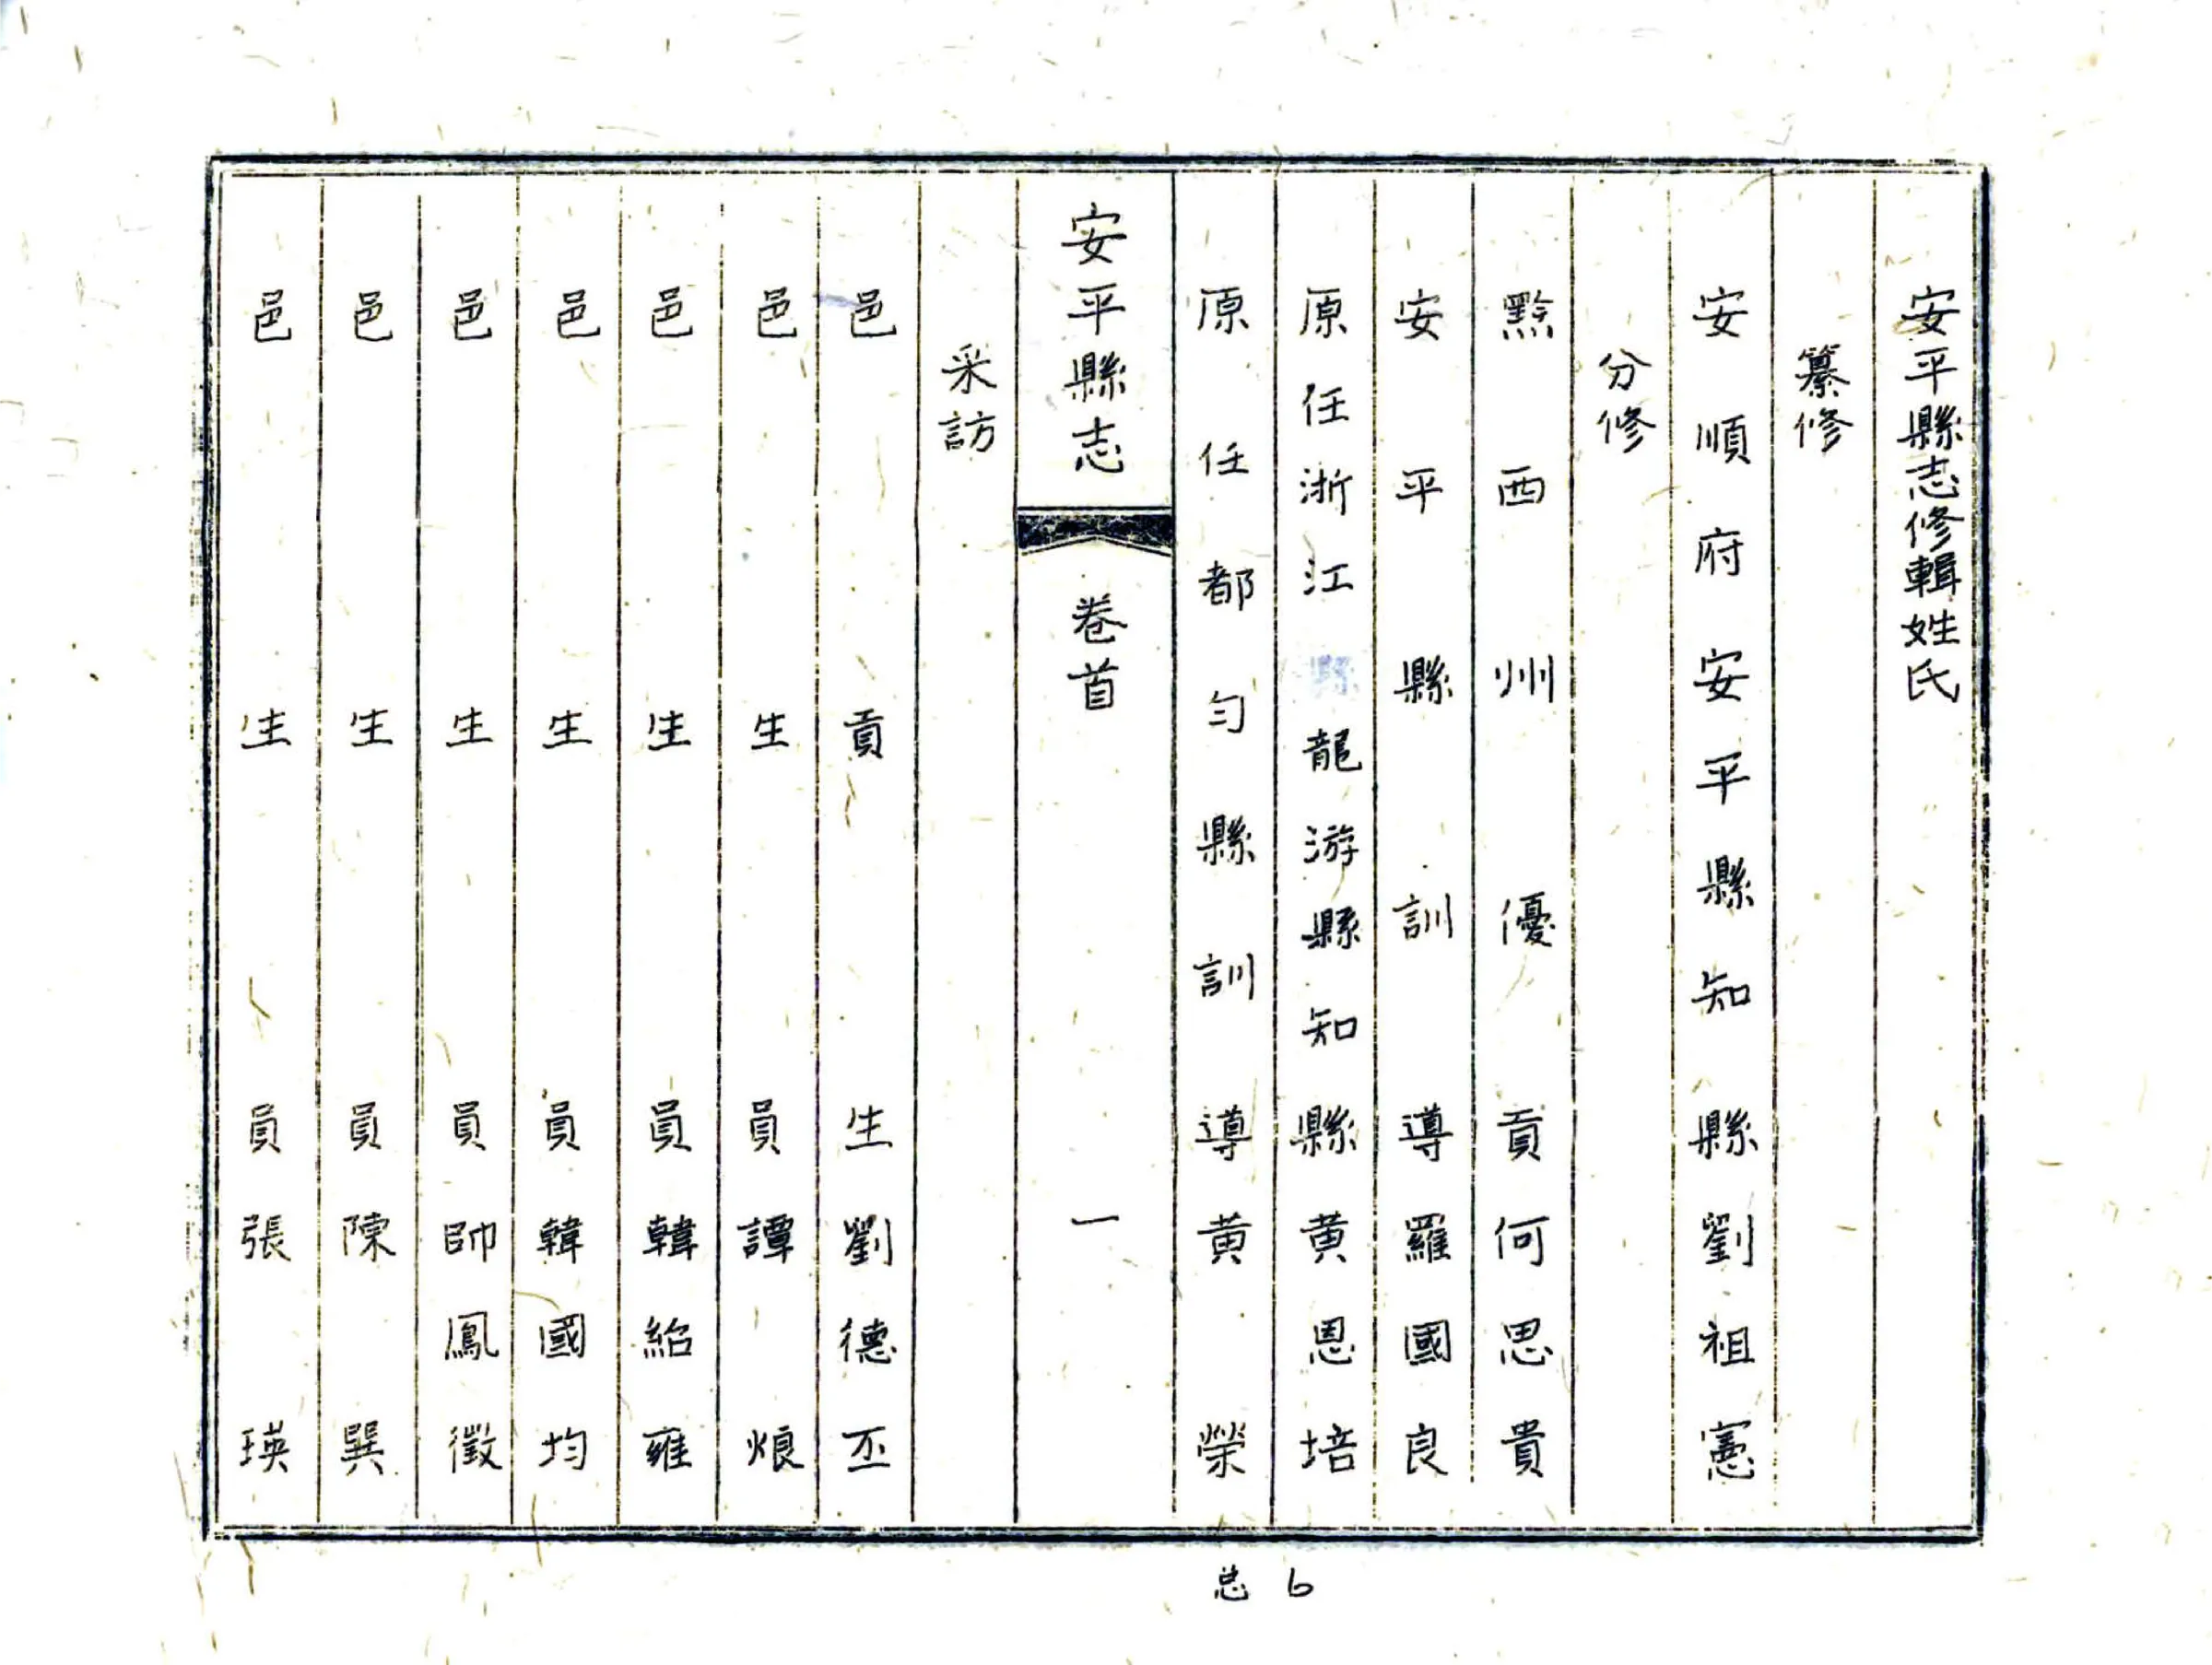 安平縣志修輯姓氏
纂修
安順府安平縣知縣劉祖憲
分修
黔西州優貢何思貴
安平縣訓導羅國良
原任浙江龍游縣知縣黄恩培
原任都匀縣訓導黄榮
安平縣志 卷首 一
采訪
邑貢生劉德丕
邑生員譚烺
邑生員韓紹雍
邑生員韓國均
邑生員帥鳳徵
邑生員陳巽
邑生員張瑛
总6